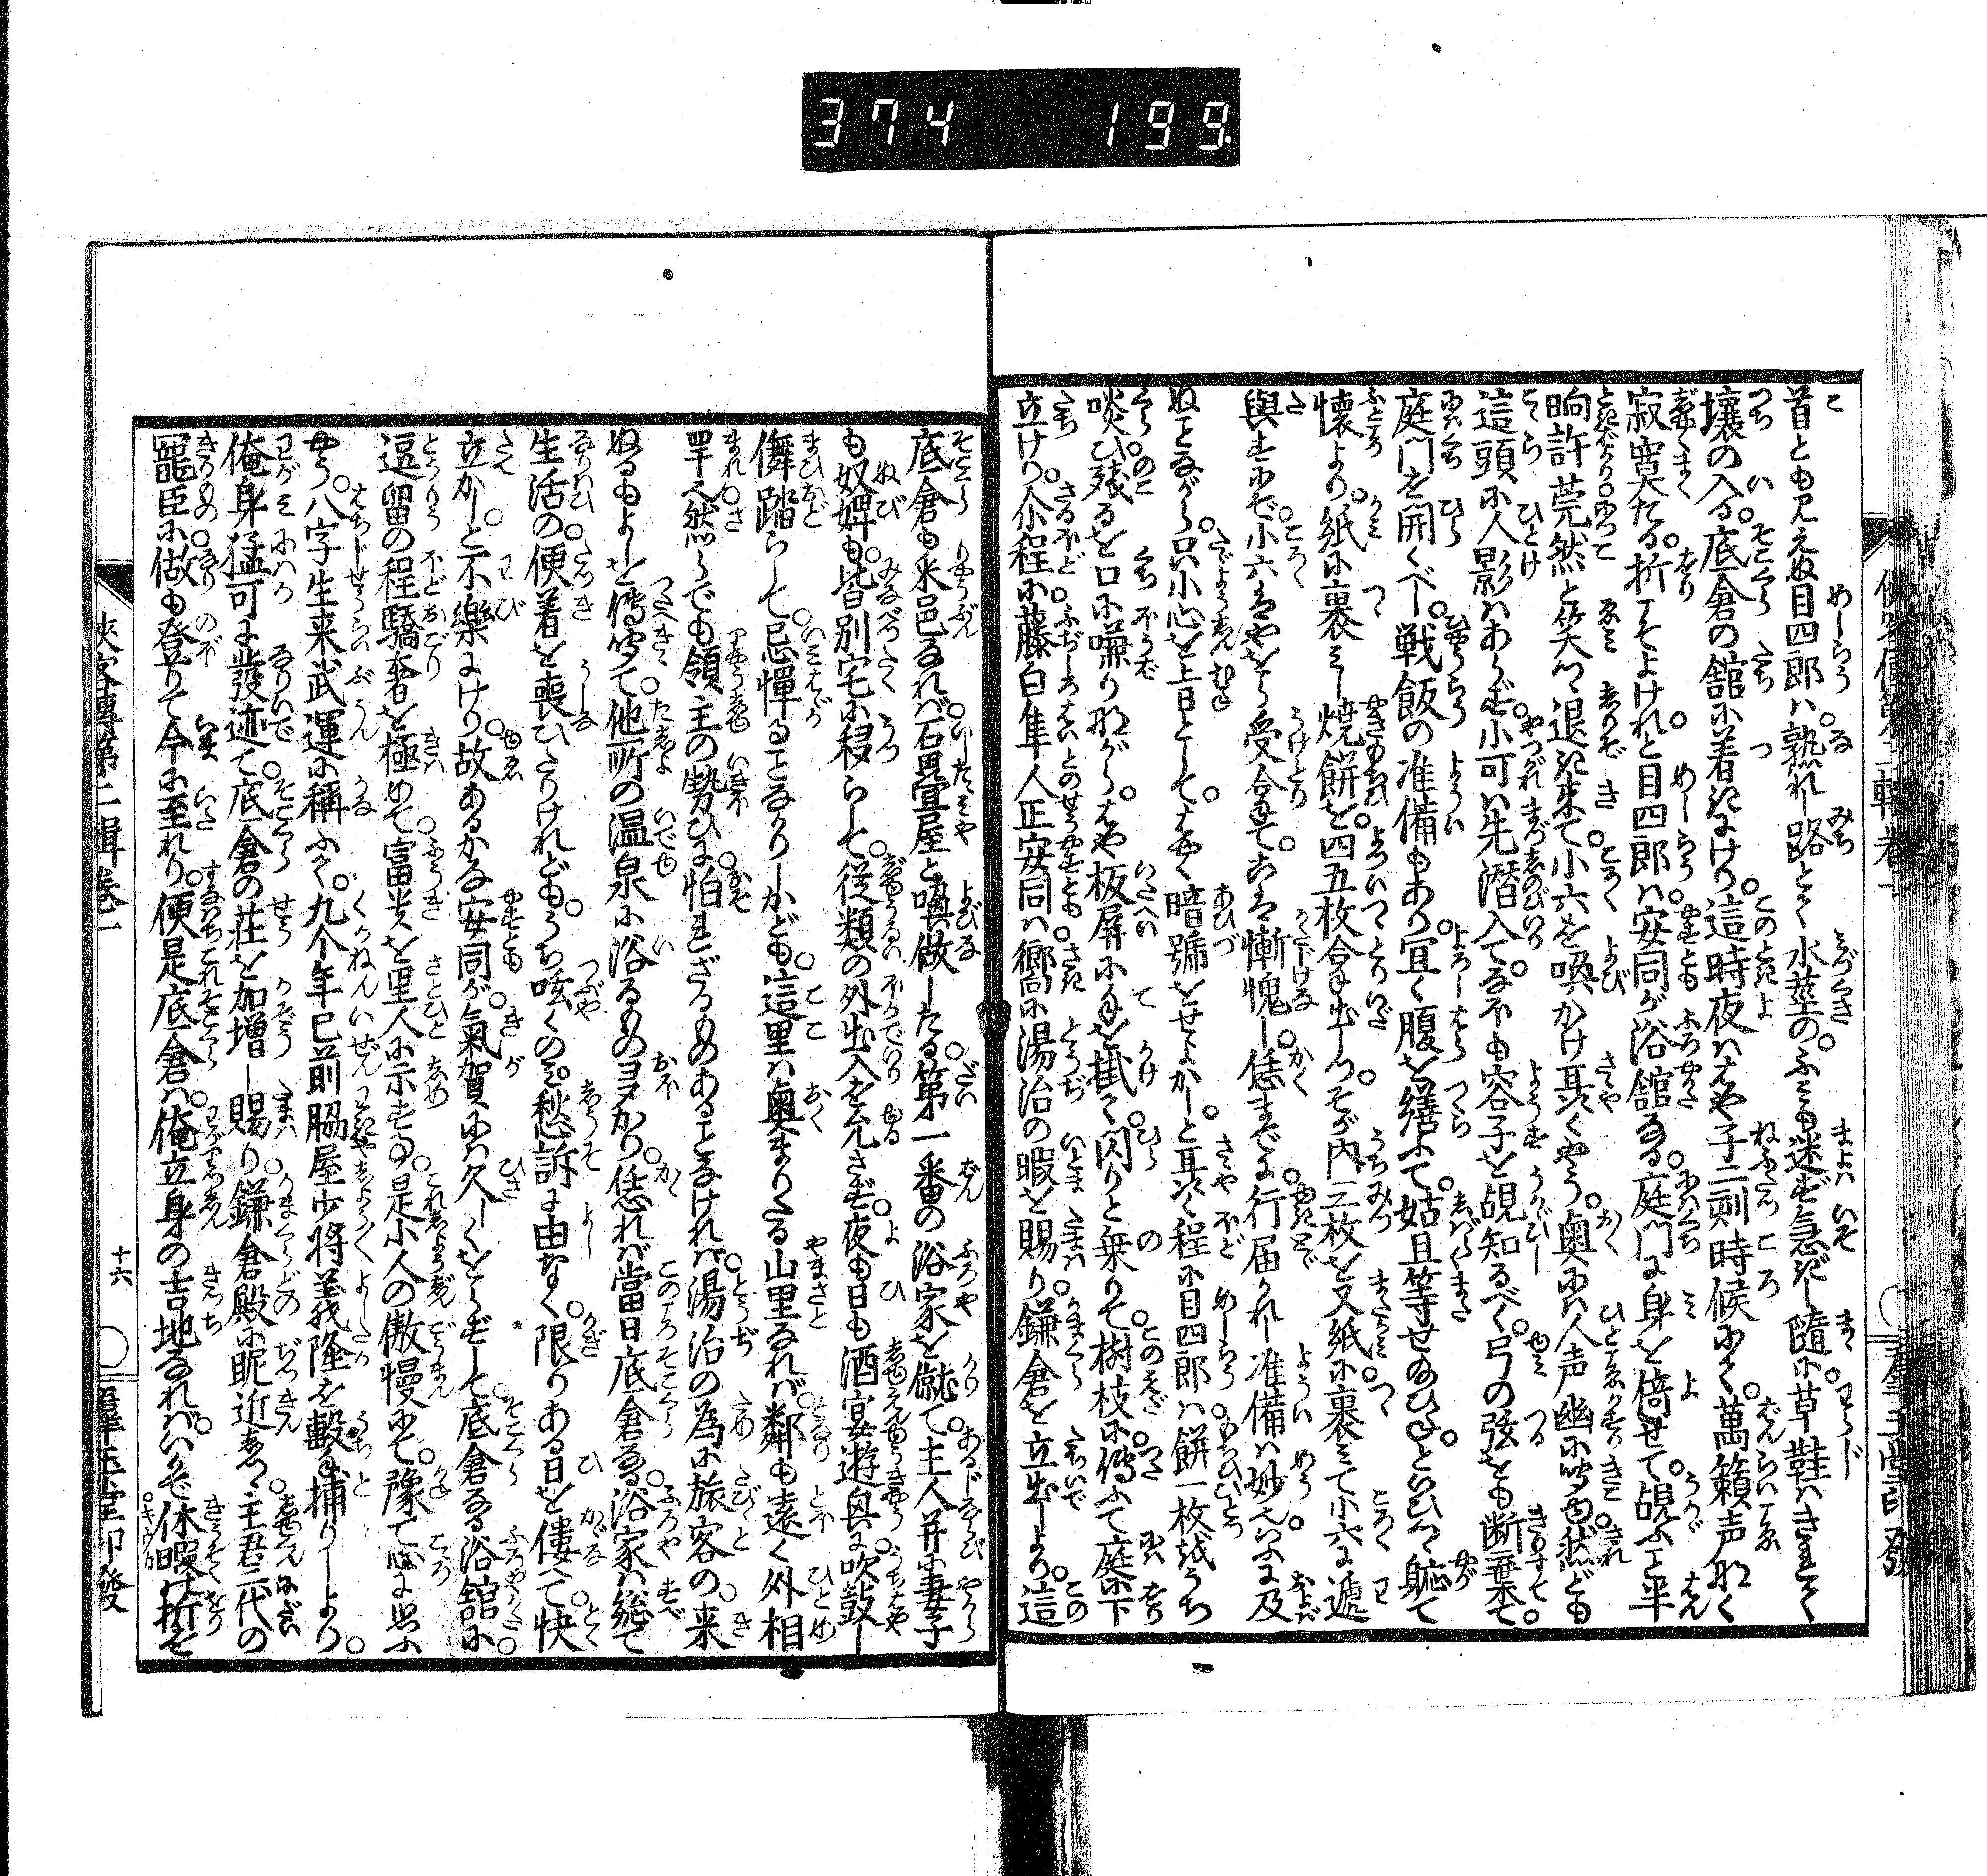 374 199
首とも見えぬ目四郎ハ熟れし路とて水莖のふミも迷ず急ぎし隨に草鞋ハきれて
壤の入る底倉の舘に着にけり這時夜ハはや子二刻時候にて萬籟声なく
寂寞たる折こそよけれと目四郎ハ安同が浴舘なる庭門に身を倚せて覘ふこと半
晌許莞然と笑つゝ退き来て小六を喚かけ耳語くやう奥にハ人声幽に聞ゆ然ども
這頭に人影ハあらず小可ハ先潜入てなほも容子を覘知るべく弓の弦をも断棄て
庭門を開くべし戦飯の准備もあり宜く腹を繕ふて姑且等せ給ひねといひつゝ躮て
懐より紙に裹ミし焼餅を四五枚合して出しつゝそが内三枚を又紙に裹ミて小六に逓
與すにぞ小六ハやをら受合りてこハ慚愧し恁までに行届かれし准備ハ妙といふに及
ぬことながら只小心を上日としてはやく暗號をせよかしと耳語く程に目四郎ハ餅一枚をうち
啖ひ残るを口に嗛りながらはや板屏に手を掛て閃りと乗りて樹枝に傳ふて庭に下
立けり尒程に藤白隼人正安同ハ嚮に湯治の暇を賜り鎌倉を立出しより這
底倉も采邑なれバ石田亶屋と喚做したる第一番の浴家を僦て主人并に妻子
も奴婢も皆別宅に移らして従類の外出入を允さず夜も日も酒宴遊興に吹鼓し
儛踏らして忌憚ることなかりしかども這里ハ奥まりたる山里なれバ鄰も遠く外相
罕也然らでも領主の勢ひに怕れざるものあることなけれバ湯治の為に旅客の来
ぬるもよしを傳聞て他所の温泉に浴るもの多かり恁れバ當日底倉なる浴家ハ総て
生活の便着を喪ひたりけれどもうち呟くのミ愁訴に由なく限りある日を僂へて快
立かしと不樂にけり故あるかな安同が氣賀にハ久しくをらずして底倉なる浴舘に
逗留の程驕奢を極めて富貴を里人に示すハ是小人の傲慢にて豫て心に思ふ
やう八字生来武運に稱ふて九个年已前脇屋少将義隆を轂ち捕りしより
俺身猛可に發迹て底倉の荘を加増し賜り鎌倉殿に昵近しつゝ主君二代の
寵臣に做も登りて今に至れり便是底倉ハ俺立身の吉地なれバいかで休暇の折を
俠客傳第二輯巻一
十六
群玉堂印發